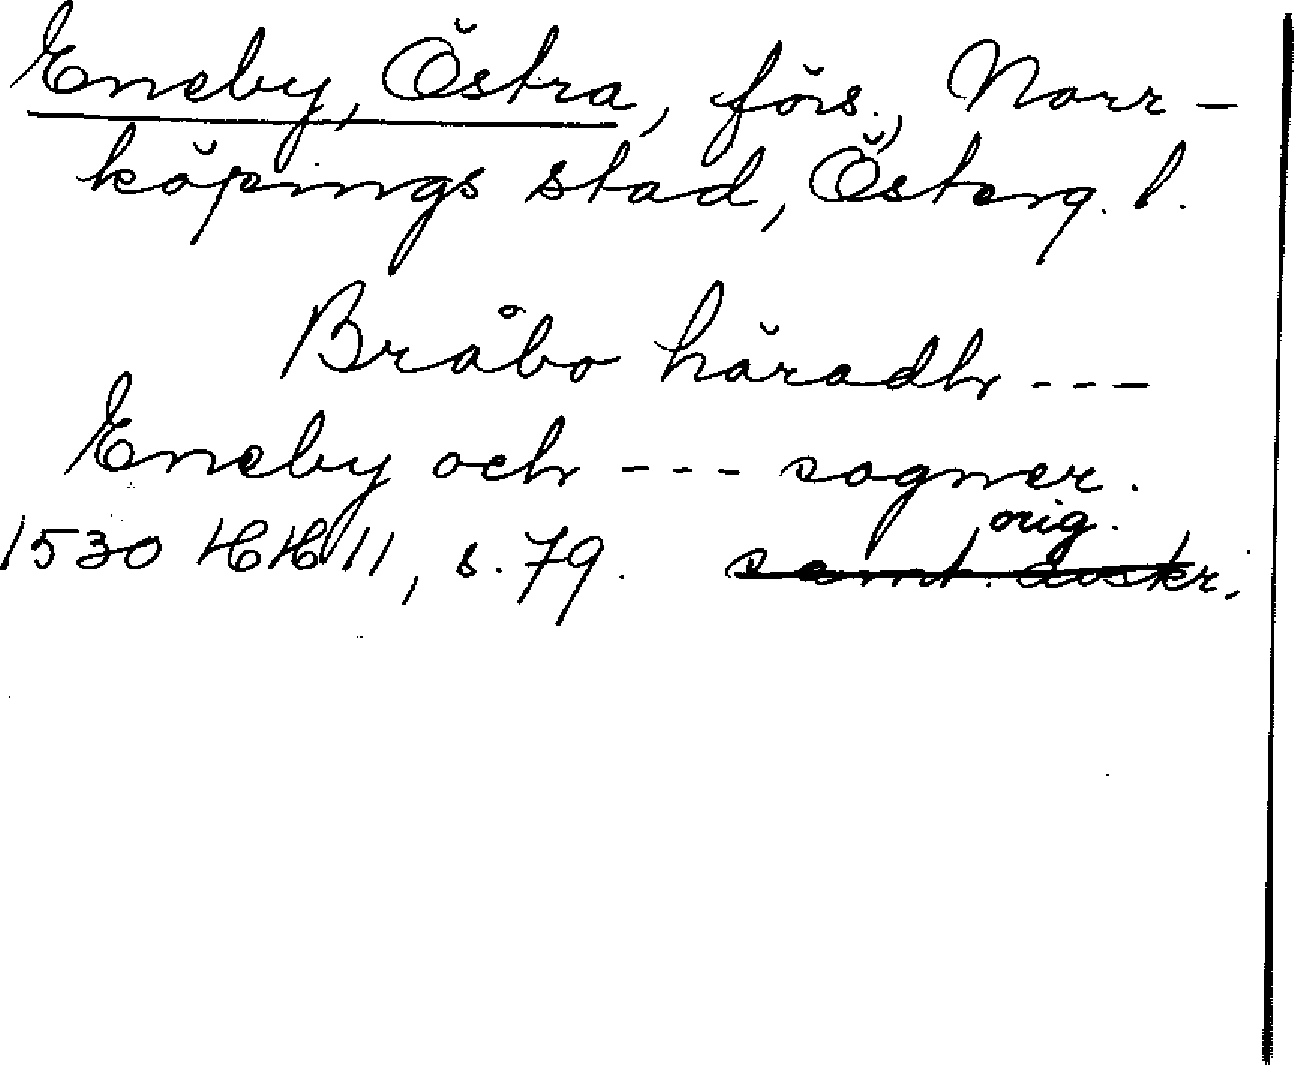 Eneby, Östra, förs., Norr-
köpings stad, Österg. l.
Bråbo häradh ---
Eneby och --- sogner.
orig.
1530 HH 11, s. 79. samt. avskr.